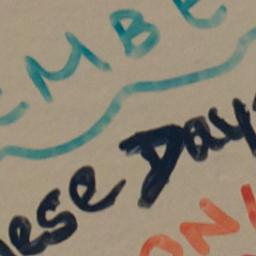 EMBE
ese Days
ON